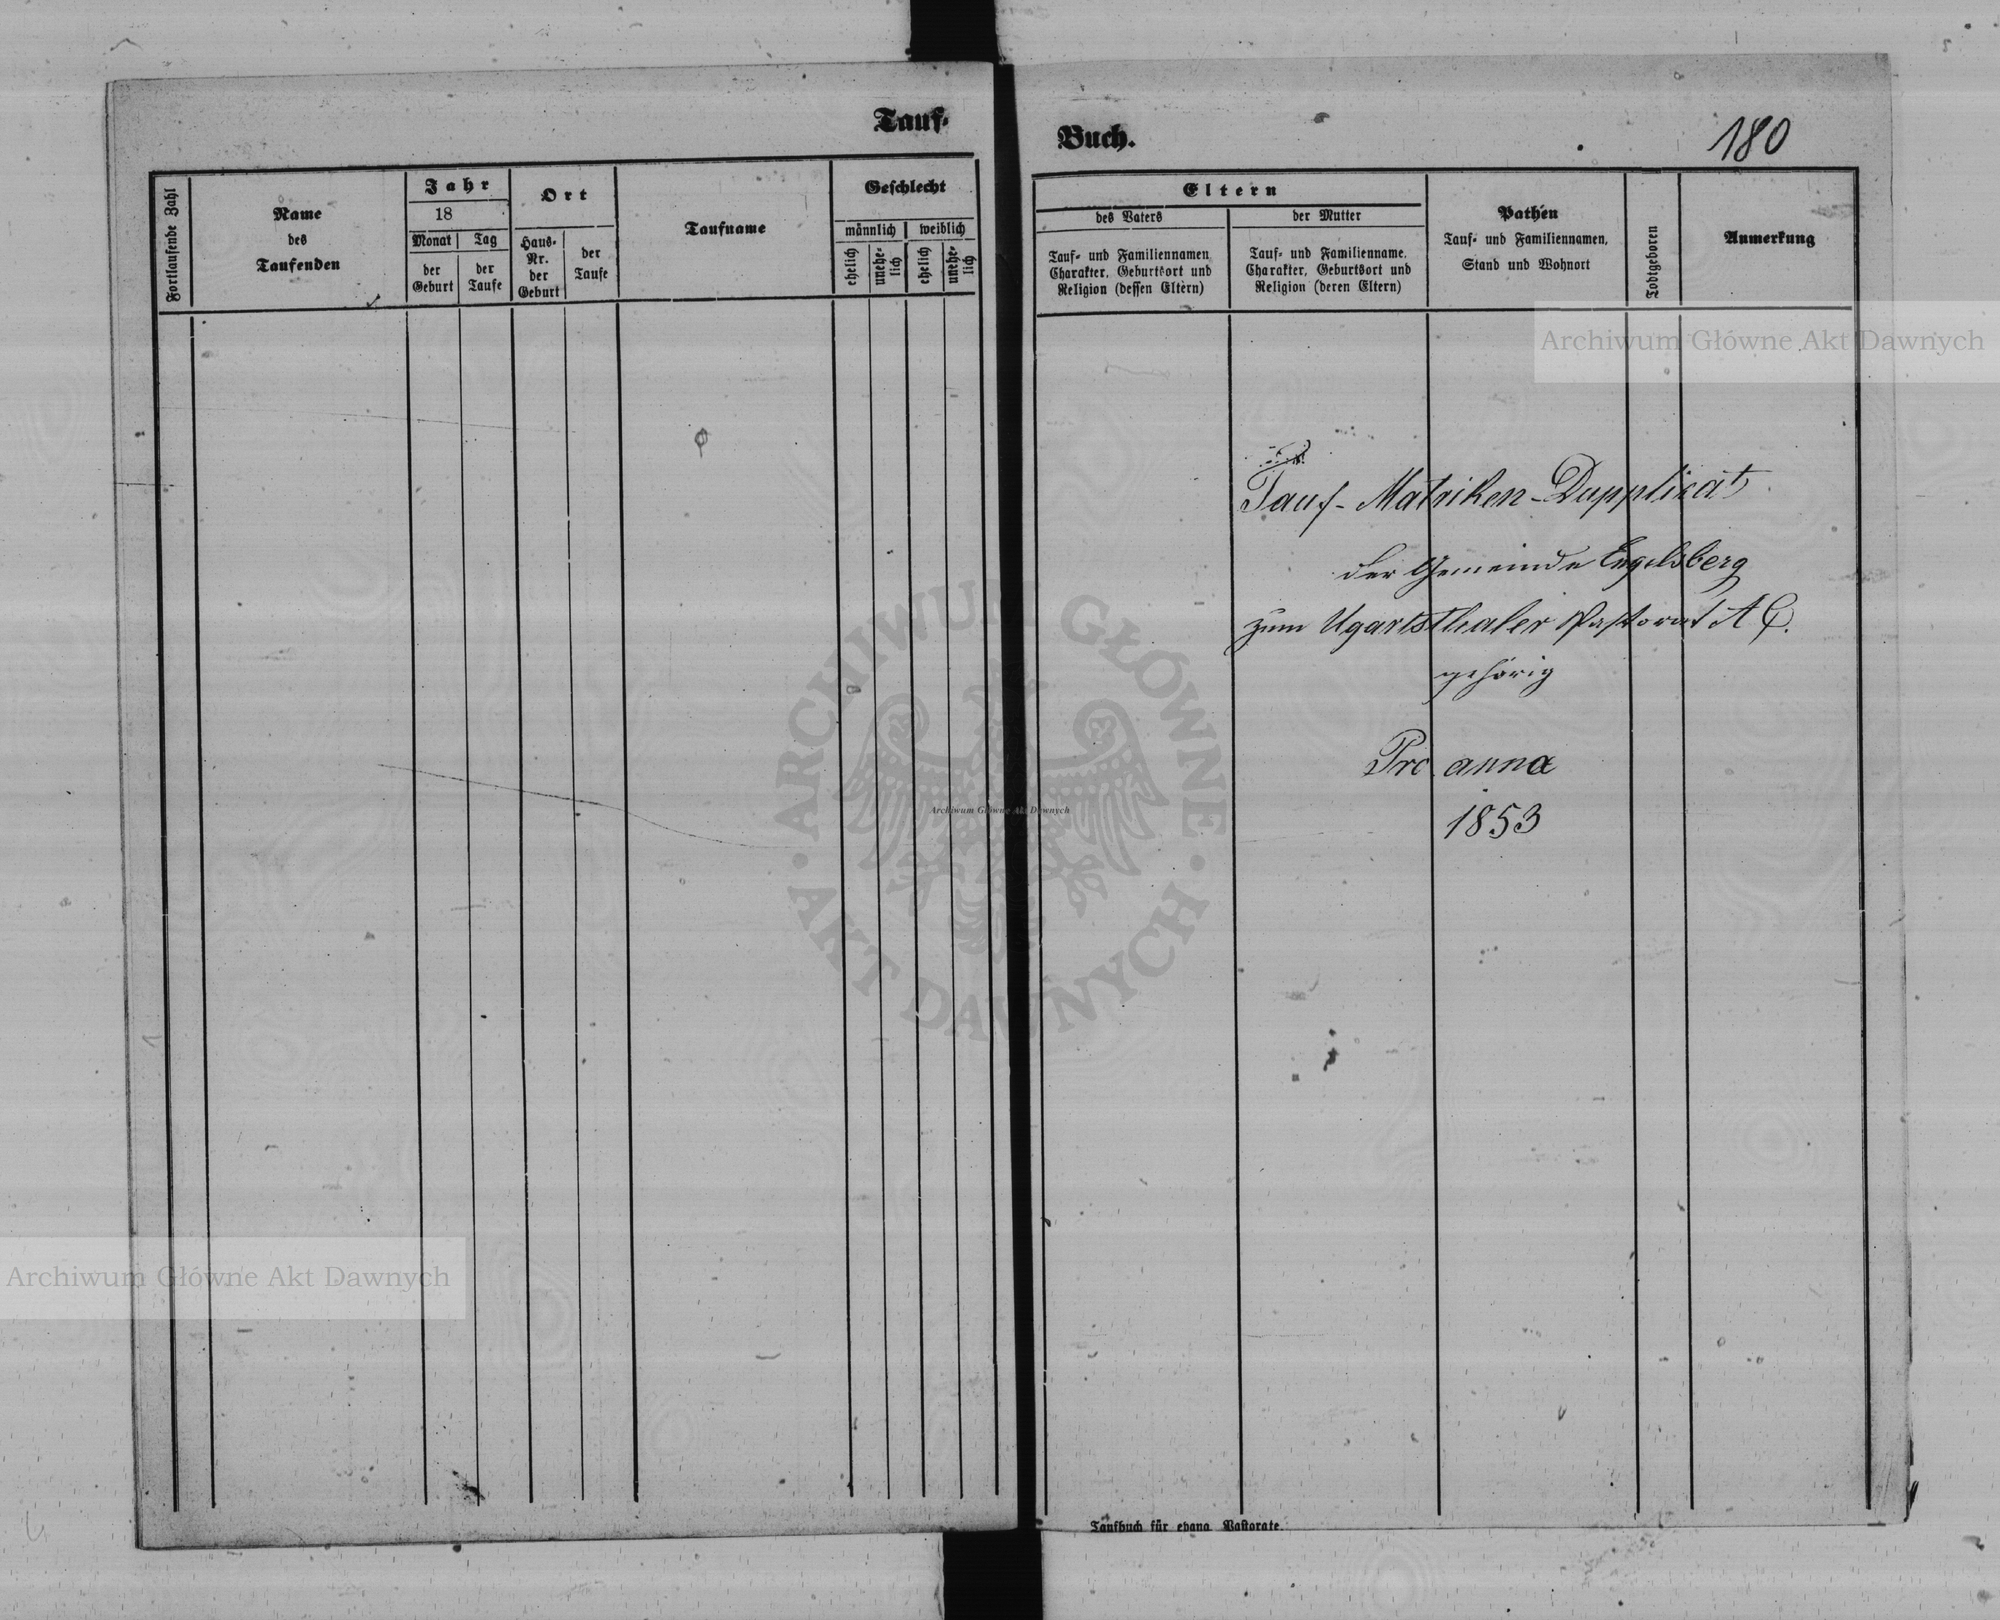 Tauf-
Buch.
180
Fortlaufende Zahl
Name
des
Taufenden
Jahr
18
Monat
Tag
der
Geburt
der
Taufe
Ort
Haus-
Nr.
der
Geburt
der
Taufe
Taufname
Geschlecht
männlich
weiblich
ehelich
unehe-
lich
ehelich
unehe-
lich
Eltern
des Vaters
Tauf- und Familiennamen
Charakter, Geburtsort und
Religion (dessen Eltern)
der Mutter
Tauf- und Familienname,
Charakter, Geburtsort und
Religion (deren Eltern)
Pathen
Tauf- und Familiennamen,
Stand und Wohnort
Todtgeboren
Anmerkung
Archiwum Główne Akt Dawnych
Tauf-Matriken-Dupplicat
der Gemeinde Engelsberg
zum Ugartsthaler Pastorat A C.
gehörig
Pro anno
1853
ARCHIWUM GŁÓWNE
AKT DAWNYCH
Archiwum Główne Akt Dawnych
Archiwum Główne Akt Dawnych
Taufbuch für evang. Pastorate.